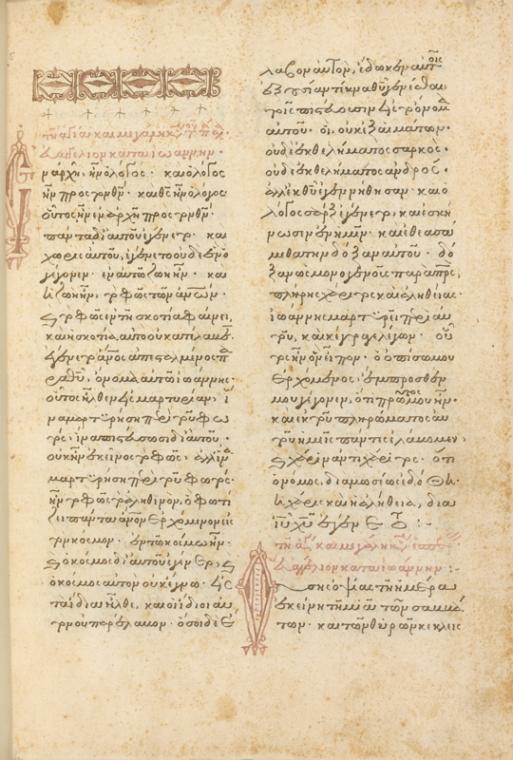 Ἐν ἀρχῆ ἦν ὁ λόγος· καὶ ὁ λόγος
ἦν πρὸς τὸν θν· καὶ θς ἦν ὁ λόγος·
οὗτος ἦν ἐν ἀρχῆ πρὸς τὸν θν·
πάντα δι αὐτοῦ ἐγένετο· καὶ
χωρὶς αὐτοῦ, ἐγένετο οὐδὲ ἓν ὃ
γέγονεν· ἐν αὐτῶ ζωὴ ἦν· καὶ
ἡ ζωὴ ἦν, τὸ φῶς τῶν ἀνων·
καὶ τὸ φῶς ἐν τῆ σκοτία φαίνει,
καὶ ἡ σκοτία, αὐτὸ οὐ κατέλαβεν·
ἐγένετο ἄνος ἀπεσταλμένος πα
ρὰ θυ, ὄνομα αὐτῶ ἰωάννης·
οὗτος ἦλθεν εἰς μαρτυρίαν, ἵ
να μαρτυρήση περὶ τοῦ φω
τός, ἵνα πάντες πιστεύσωσι δι αὐτοῦ·
οὐκ ἦν ἐκεῖνος τὸ φῶς· ἀλλ ἵνα
μαρτυρήση περὶ τοῦ φωτός·
ἦν τὸ φῶς τὸ ἀληθινόν, ὃ φωτί
ζει πάντα ἄνον ἐρχόμενον εἰς
τὸν κόσμον· ἐν τῶ κόσμω ἦν·
καὶ ὁ κόσμος δι αὐτοῦ ἐγένετο, καὶ
ὁ κόσμος αὐτὸν οὐκ ἔγνω· εἰς
τὰ ἴδια ἦλθε, καὶ οἱ ἴδιοι αὐ
τὸν οὐ παρέλαβον· ὅσοι δὲ ἔ
λαβον αὐτὸν, ἔδωκεν αὐτοῖς
ἐξουσίαν τέκνα θυ γενέσθαι
τοῖς πιστεύουσιν εἰς τὸ ὄνομα
αὐτοῦ· οἳ οὐκ ἐξ αἱμάτων·
οὐδὲ ἐκ θελήματος σαρκός·
οὐδὲ ἐκ θελήματος ἀνδρός·
ἀλλ ἐκ θυ ἐγεννήθησαν· καὶ ὁ
λόγος σὰρξ ἐγένετο, καὶ ἐσκή
νωσεν ἐν ἡμῖν· καὶ ἐθεασά
μεθα τὴν δόξαν αὐτοῦ· δό
ξαν ὡς μονογενοῦς παρὰ πρς,
πλήρης χάριτος καὶ ἀληθείας·
ἰωάννης μαρτυρεῖ περὶ αὐ
τοῦ, καὶ κέκραγε λέγων· οὗ
τος ἦν ὃν εἶπον· ὁ ὀπίσω μου
ἐρχόμενος, ἔμπροσθέν
μου γέγονεν, ὅτι πρῶτός μου ἦν·
καὶ ἐκ τοῦ πληρώματος αὐ
τοῦ ἡμεῖς πάντες ἐλάβομεν,
καὶ χάριν ἀντὶ χάριτος· ὅτι
ὁ νόμος, διὰ μωσέως ἐδόθη·
ἡ χάρις καὶ ἡ ἀλήθεια, διὰ
ιυ χυ ἐγένετο :-
οὔσης ὀψίας τῆ ἡμέρα
ἐκείνη τῆ μιᾶ τῶν σαββά
των· καὶ τῶν θυρῶν κεκλεισ